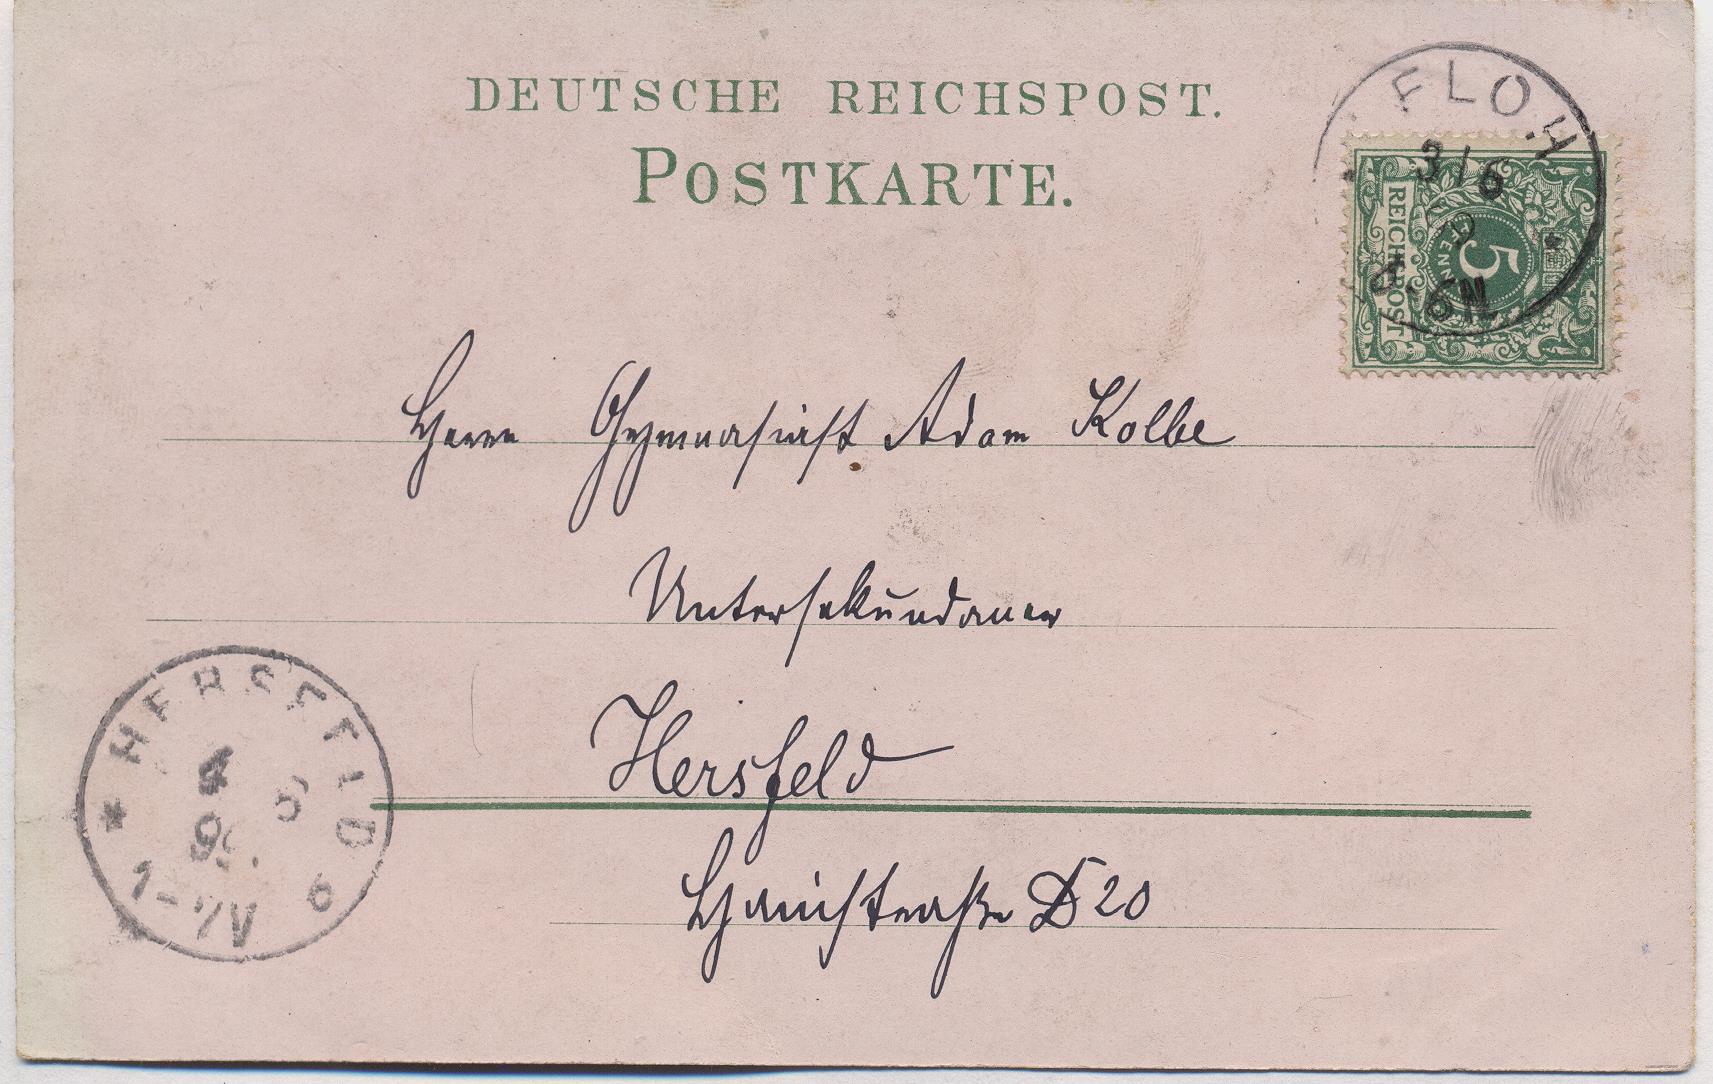 DEUTSCHE REICHSPOST.
POSTKARTE.
FLOH
3/6
5-6N
REICHSPOST
5
PFENNIG
Herrn Gymnasiast Adam Kolbe
Untersekundaner
Hersfeld
Hainstraße D 20
HERSFELD
4 6
1-2N